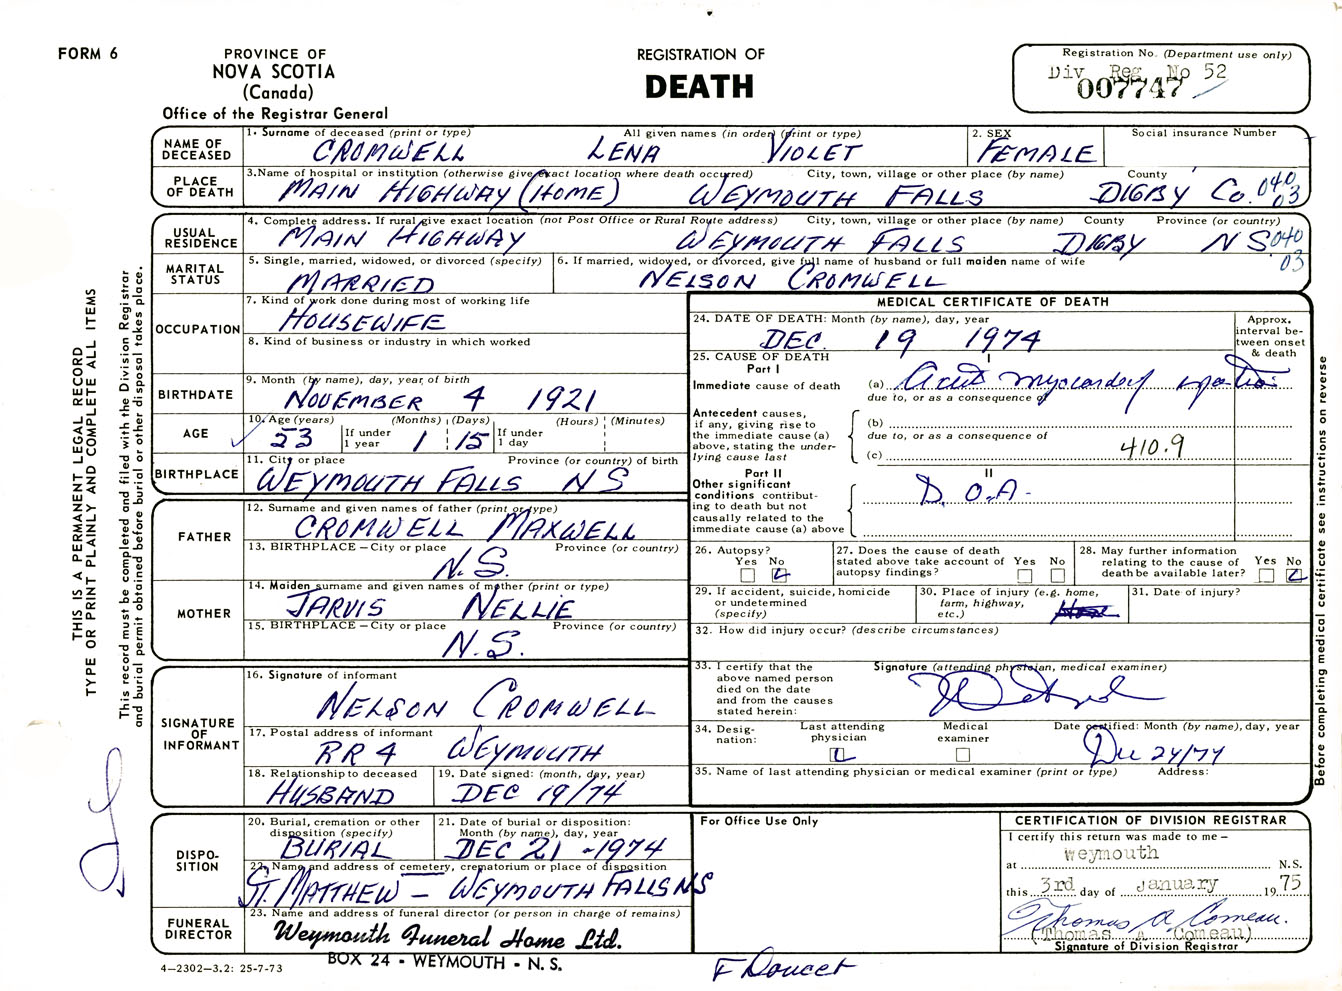 FORM 6
PROVINCE OF
NOVA SCOTIA
(Canada)
Office of the Registrar General
REGISTRATION OF
DEATH
Registration No. (Department use only)
Div Reg No 52
007747
NAME OF DECEASED
1. Surname of deceased (print or type) All given names (in order) (print or type)
CROMWELL LENA VIOLET
2. SEX
FEMALE
Social insurance Number
PLACE OF DEATH
3. Name of hospital or institution (otherwise give exact location where death occurred) City, town, village or other place (by name) County
MAIN HIGHWAY (HOME) WEYMOUTH FALLS DIGBY Co. 040 03
USUAL RESIDENCE
4. Complete address. If rural give exact location (not Post Office or Rural Route address) City, town, village or other place (by name) County Province (or country)
MAIN HIGHWAY WEYMOUTH FALLS DIGBY N S 040 03
MARITAL STATUS
5. Single, married, widowed, or divorced (specify)
MARRIED
6. If married, widowed, or divorced, give full name of husband or full maiden name of wife
NELSON CROMWELL
OCCUPATION
7. Kind of work done during most of working life
HOUSEWIFE
8. Kind of business or industry in which worked
BIRTHDATE
9. Month (by name), day, year of birth
NOVEMBER 4 1921
AGE
10. Age (years) If under 1 year (Months) (Days) If under 1 day (Hours) (Minutes)
53 1 15
BIRTHPLACE
11. City or place Province (or country) of birth
WEYMOUTH FALLS N S
FATHER
12. Surname and given names of father (print or type)
CROMWELL MAXWELL
13. BIRTHPLACE – City or place Province (or country)
N. S.
MOTHER
14. Maiden surname and given names of mother (print or type)
JARVIS NELLIE
15. BIRTHPLACE – City or place Province (or country)
N. S.
SIGNATURE OF INFORMANT
16. Signature of informant
NELSON CROMWELL
17. Postal address of informant
RR 4 WEYMOUTH
18. Relationship to deceased
HUSBAND
19. Date signed: (month, day, year)
DEC 19/74
DISPO-SITION
20. Burial, cremation or other disposition (specify)
BURIAL
21. Date of burial or disposition: Month (by name), day, year
DEC 21 - 1974
22. Name and address of cemetery, crematorium or place of disposition
ST. MATTHEW – WEYMOUTH FALLS NS
FUNERAL DIRECTOR
23. Name and address of funeral director (or person in charge of remains)
Weymouth Funeral Home Ltd.
BOX 24 - WEYMOUTH - N. S.
4–2302–3.2: 25-7-73
MEDICAL CERTIFICATE OF DEATH
24. DATE OF DEATH: Month (by name), day, year
DEC. 19 1974
Approx. interval between onset & death
25. CAUSE OF DEATH
Part I
I
Immediate cause of death (a) Acute myocardial
due to, or as a consequence of
Antecedent causes, if any, giving rise to the immediate cause (a) above, stating the underlying cause last
(b)
due to, or as a consequence of
(c) 410.9
Part II
II
Other significant conditions contributing to death but not causally related to the immediate cause (a) above
D. O. A -
26. Autopsy? Yes No
27. Does the cause of death stated above take account of autopsy findings? Yes No
28. May further information relating to the cause of death be available later? Yes No
29. If accident, suicide, homicide or undetermined (specify)
30. Place of injury (e.g. home, farm, highway, etc.)
31. Date of injury?
32. How did injury occur? (describe circumstances)
33. I certify that the above named person died on the date and from the causes stated herein:
Signature (attending physician, medical examiner)
34. Designation: Last attending physician Medical examiner
Date certified: Month (by name), day, year
Dec 24/74
35. Name of last attending physician or medical examiner (print or type) Address:
For Office Use Only
F Doucet
CERTIFICATION OF DIVISION REGISTRAR
I certify this return was made to me –
at Weymouth N.S.
this 3rd day of January 1975
Thomas A Comeau.
(Thomas A Comeau)
Signature of Division Registrar
THIS IS A PERMANENT LEGAL RECORD
TYPE OR PRINT PLAINLY AND COMPLETE ALL ITEMS
This record must be completed and filed with the Division Registrar
and burial permit obtained before burial or other disposal takes place.
Before completing medical certificate see instructions on reverse